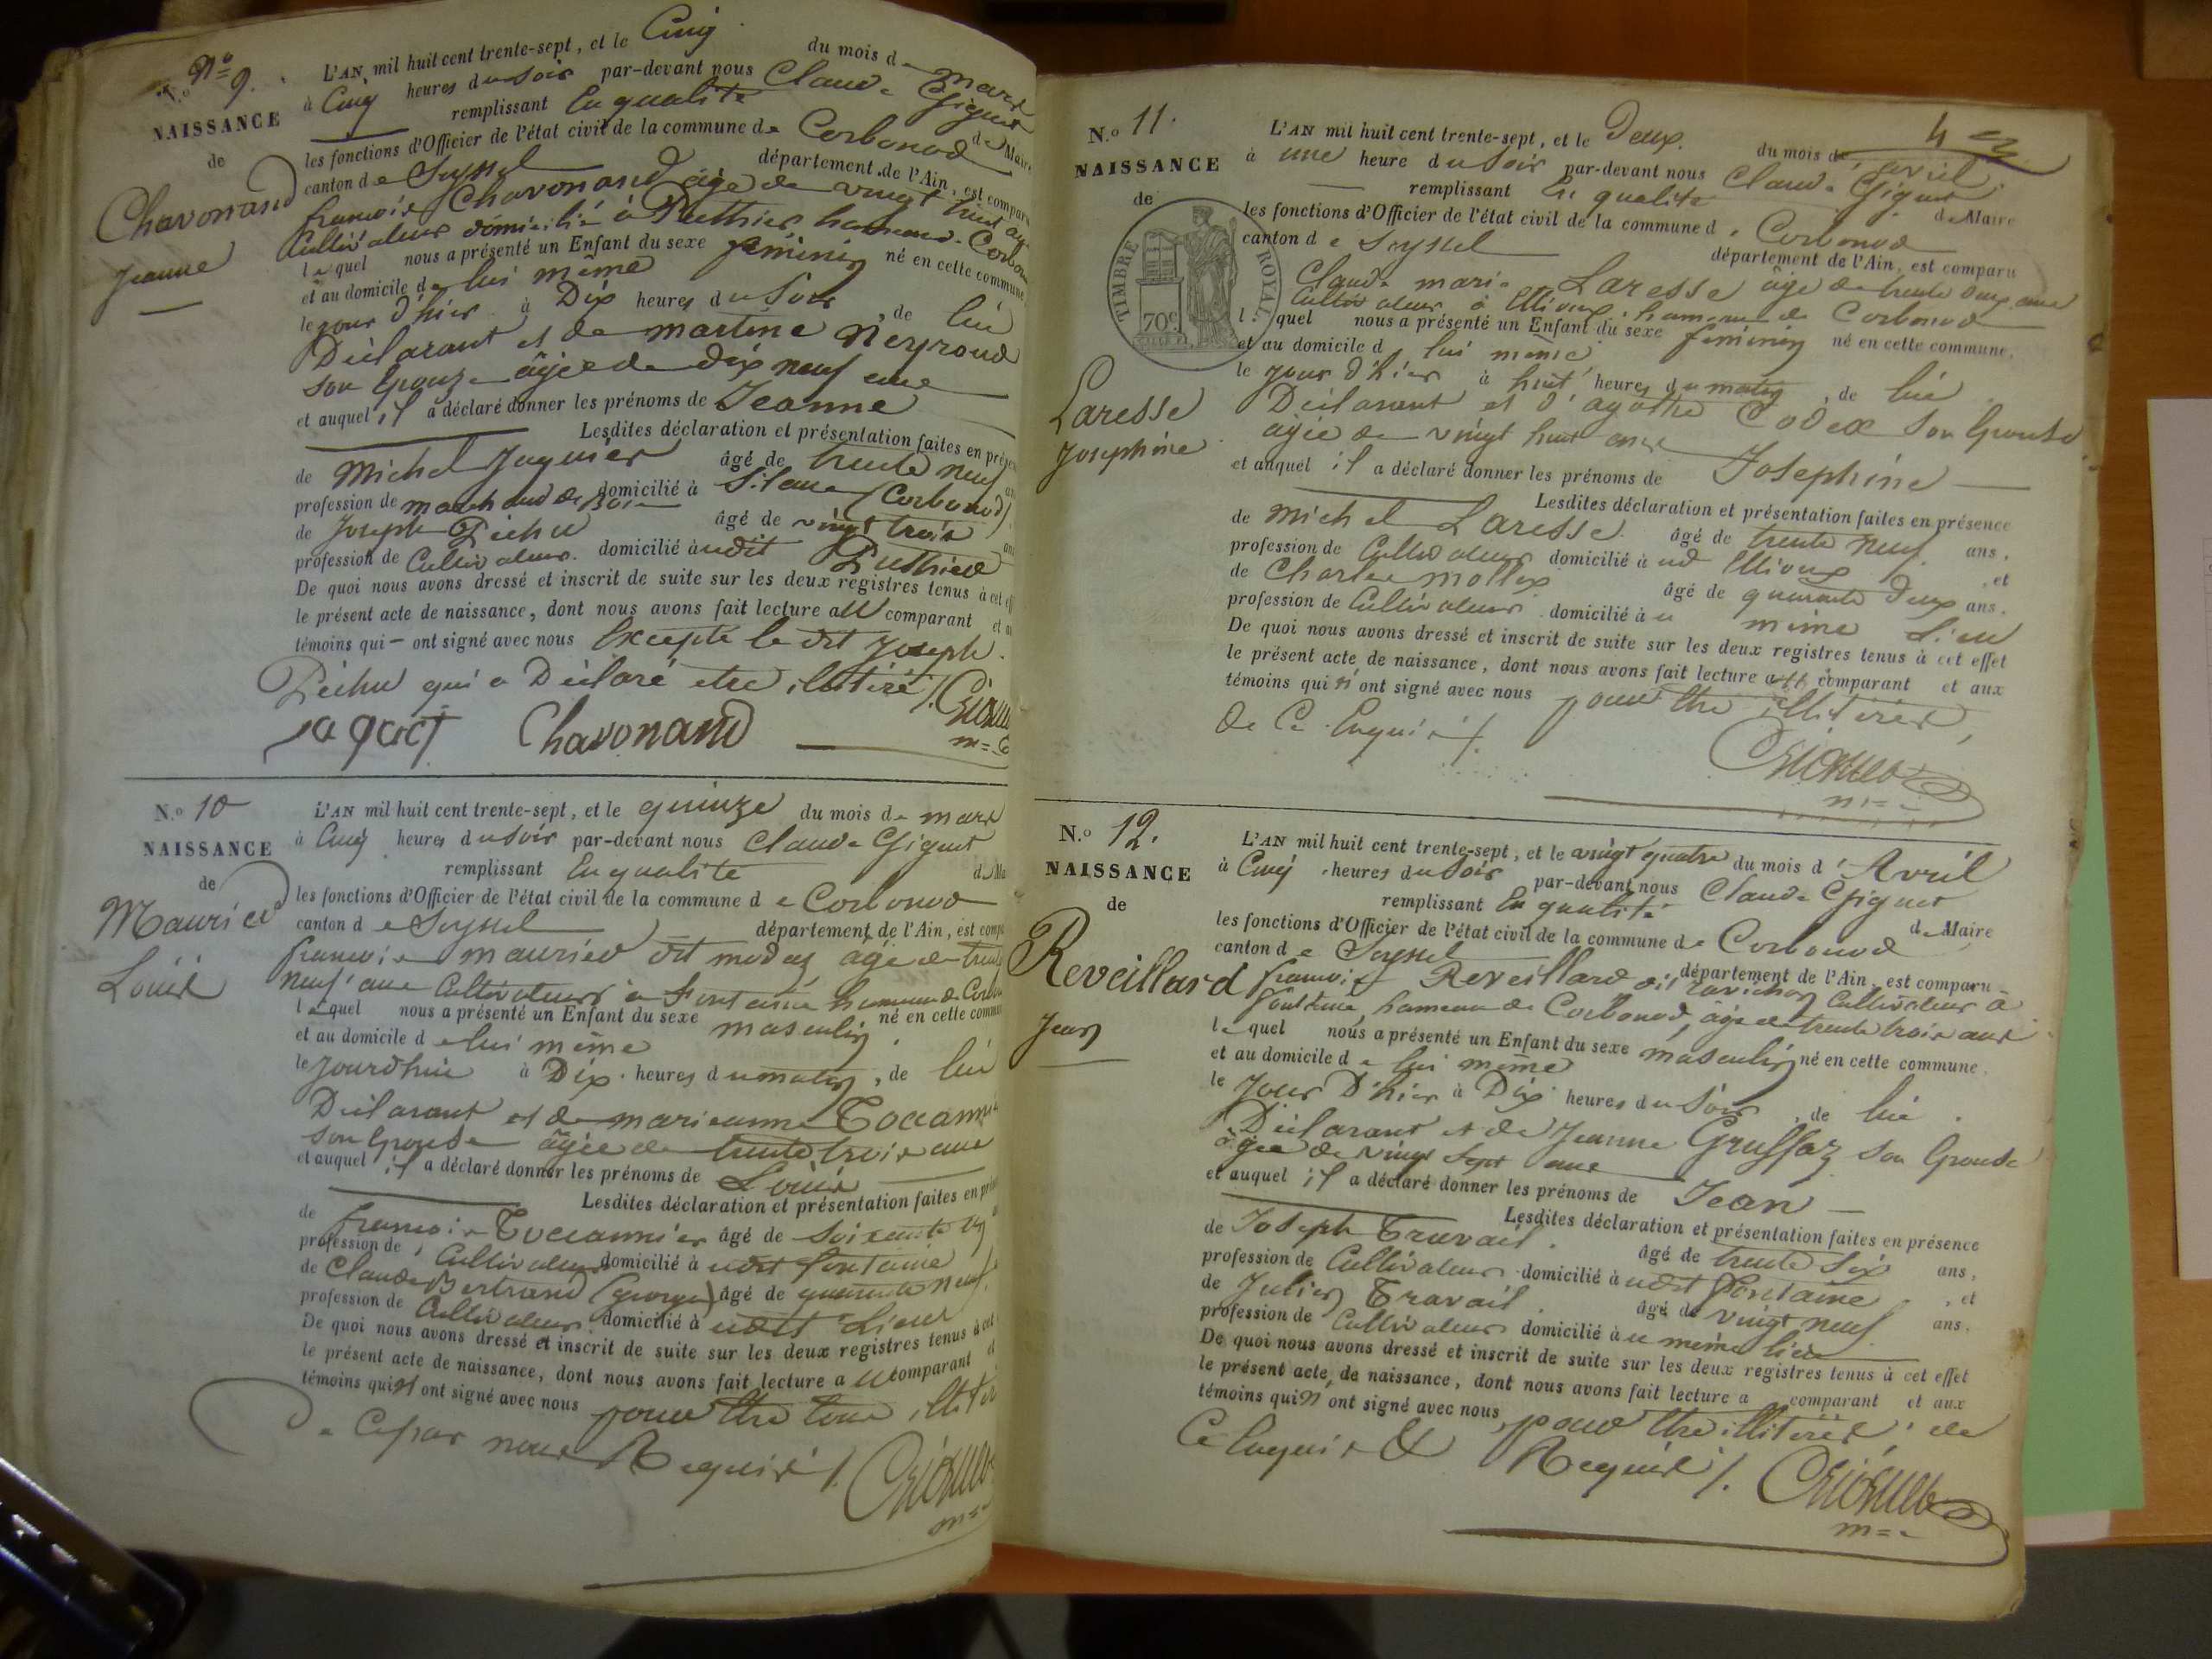 N.o 9.
NAISSANCE
de
Chavonand
Jeanne
L'AN mil huit cent trente-sept, et le Cinq du mois de mars
à Cinq heures du soir par-devant nous Claude Giguet
remplissant En qualité de Maire
les fonctions d'Officier de l'état civil de la commune de Corbonod
canton de Seyssel département de l'Ain, est comparu
françois Chavonand âgé de vingt huit ans
Cultivateur domicilié à Puthier, hameau de Corbonod
lequel nous a présenté un Enfant du sexe féminin né en cette commune,
et au domicile de lui même
le jour d'hier à Dix heures du Soir, de lui
Déclarant et de martine Neyroud
son Epouse âgée de dix neuf ans
et auquel il a déclaré donner les prénoms de Jeanne
Lesdites déclaration et présentation faites en présence
de Michel Jaquier âgé de trente neuf ans
profession de marchand de Bois domicilié à Silans (Corbonod)
de Joseph Pichu âgé de vingt trois ans
profession de Cultivateur domicilié à udit Puthier
De quoi nous avons dressé et inscrit de suite sur les deux registres tenus à cet eff
le présent acte de naissance, dont nous avons fait lecture au comparant et au
témoins qui ont signé avec nous Excepté le dit Joseph
Pichu qui a Déclaré etre illitéré /.
Chavonand
N.o 10
NAISSANCE
de
Mauries
Louis
L'AN mil huit cent trente-sept, et le quinze du mois de mars
à Cinq heures du soir par-devant nous Claude Giguet
remplissant En qualité de Ma
les fonctions d'Officier de l'état civil de la commune de Corbonod
canton de Seyssel département de l'Ain, est comparu
francois mauries dit âgé de trente
neuf ans Cultivateur à Fontaine hameau de Corbonod
lequel nous a présenté un Enfant du sexe masculin né en cette commune
et au domicile de lui même
le jourdhui à Dix heures du matin, de lui
Déclarant et de marieanne Toccannier
son Epouse âgée de trente trois ans
et auquel il a déclaré donner les prénoms de Louis
Lesdites déclaration et présentation faites en pré
de françois Toccannier âgé de soixante
profession de Cultivateur domicilié à udit fontaine
de Claude Bertrand (george) âgé de quarante neuf
profession de Cultivateur domicilié à udit Lieu
De quoi nous avons dressé et inscrit de suite sur les deux registres tenus à cet
le présent acte de naissance, dont nous avons fait lecture au comparant et
témoins qui n'ont signé avec nous pour être tous illitér
de ce par nous Requis /.
4
N.o 11.
NAISSANCE
de
TIMBRE ROYAL
70c
Laresse
Josephine
L'AN mil huit cent trente-sept, et le Deux du mois d'avril
à une heure du soir par-devant nous Claude Giguet
remplissant En qualité de Maire
les fonctions d'Officier de l'état civil de la commune de Corbonod
canton de Seyssel département de l'Ain, est comparu
Claude marie Laresse âgé de trente deux ans
Cultivateur à Etlioux hameau de Corbonod
lequel nous a présenté un Enfant du sexe féminin né en cette commune,
et au domicile de lui même
le jour d'hier à huit heures du matin, de lui
Déclarant et d'agathe Codex son Epouse
âgée de vingt huit ans
et auquel il a déclaré donner les prénoms de Josephine
Lesdites déclaration et présentation faites en présence
de Michel Laresse âgé de trente neuf ans,
profession de Cultivateur domicilié à ud Etlioux, et
de Charles Mollex âgé de quarante Deux ans,
profession de Cultivateur domicilié à u même Lieu
De quoi nous avons dressé et inscrit de suite sur les deux registres tenus à cet effet
le présent acte de naissance, dont nous avons fait lecture au comparant et aux
témoins qui n'ont signé avec nous pour être illitérés,
de ce Enquis /.
N.o 12.
NAISSANCE
de
Reveillard
Jean
L'AN mil huit cent trente-sept, et le vingt quatre du mois d'Avril
à Cinq heures du soir par-devant nous Claude Giguet
remplissant En qualité de Maire
les fonctions d'Officier de l'état civil de la commune de Corbonod
canton de Seyssel département de l'Ain, est comparu
françois Reveillard dit Cultivateur à
fontaine, hameau de Corbonod, âgé de trente trois ans
lequel nous a présenté un Enfant du sexe masculin né en cette commune,
et au domicile de lui même
le Jour D'hier à Dix heures du Soir, de lui
Déclarant et de Jeanne Gruffaz son Epouse
âgée de vingt sept ans
et auquel il a déclaré donner les prénoms de Jean
Lesdites déclaration et présentation faites en présence
de Joseph Travail âgé de trente Six ans,
profession de Cultivateur domicilié à udit Fontaine, et
de Julien Travail âgé de vingt neuf ans,
profession de Cultivateur domicilié à u même lieu
De quoi nous avons dressé et inscrit de suite sur les deux registres tenus à cet effet
le présent acte de naissance, dont nous avons fait lecture a comparant et aux
témoins qui n'ont signé avec nous pour être illitérés, de
Ce Enquis & Requis /.